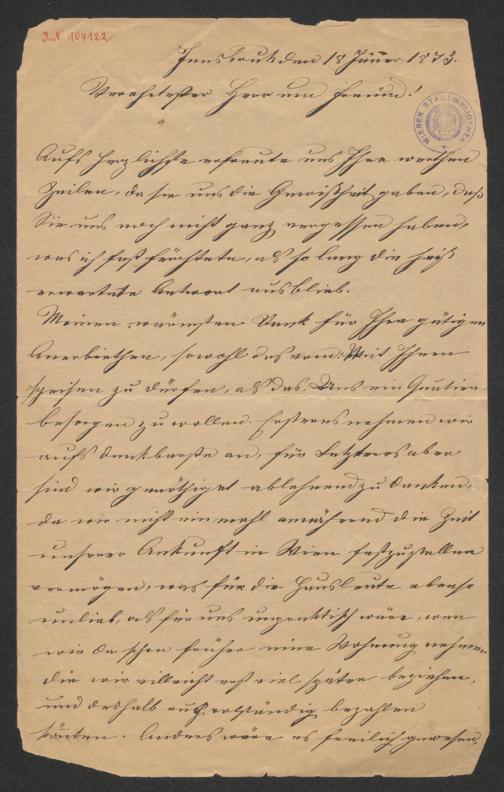 J.N. 104122
WIENER STADTBIBLIOTHEK
Innsbruck den 18 Jänner 1873.
Verehrtester Herr und Freund!
Aufs Herzlichste erfreute uns Ihre werthen
Zeilen, da sie uns die Gewißheit gaben, daß
Sie uns noch nicht ganz vergessen haben,
was ich fast fürchtete, als so lang die heiß
erwartete Antwort ausblieb.
Meinen wärmsten Dank für Ihre gütigen
Anerbiethen, sowohl das von Mit Ihnen
speisen zu dürfen, als das, Uns ein Quatier
besorgen zu wollen. Ersteres nehmen wir
aufs dankbarste an, für Letzteres aber
sind wir genöthiget ablehnend zu danken,
da wir nicht einmahl annährend die Zeit
unserer Ankunft in Wien festzustellen
vermögen, was für die Hausleute ebenso
unlieb, als für uns unpraktisch wäre, wen
wir da schon früher eine Wohnung nehmen
die wir villeicht erst viel später beziehen,
und deshalb auch vollständig bezahlen
könten. Anders wäre es freilich gewesen,